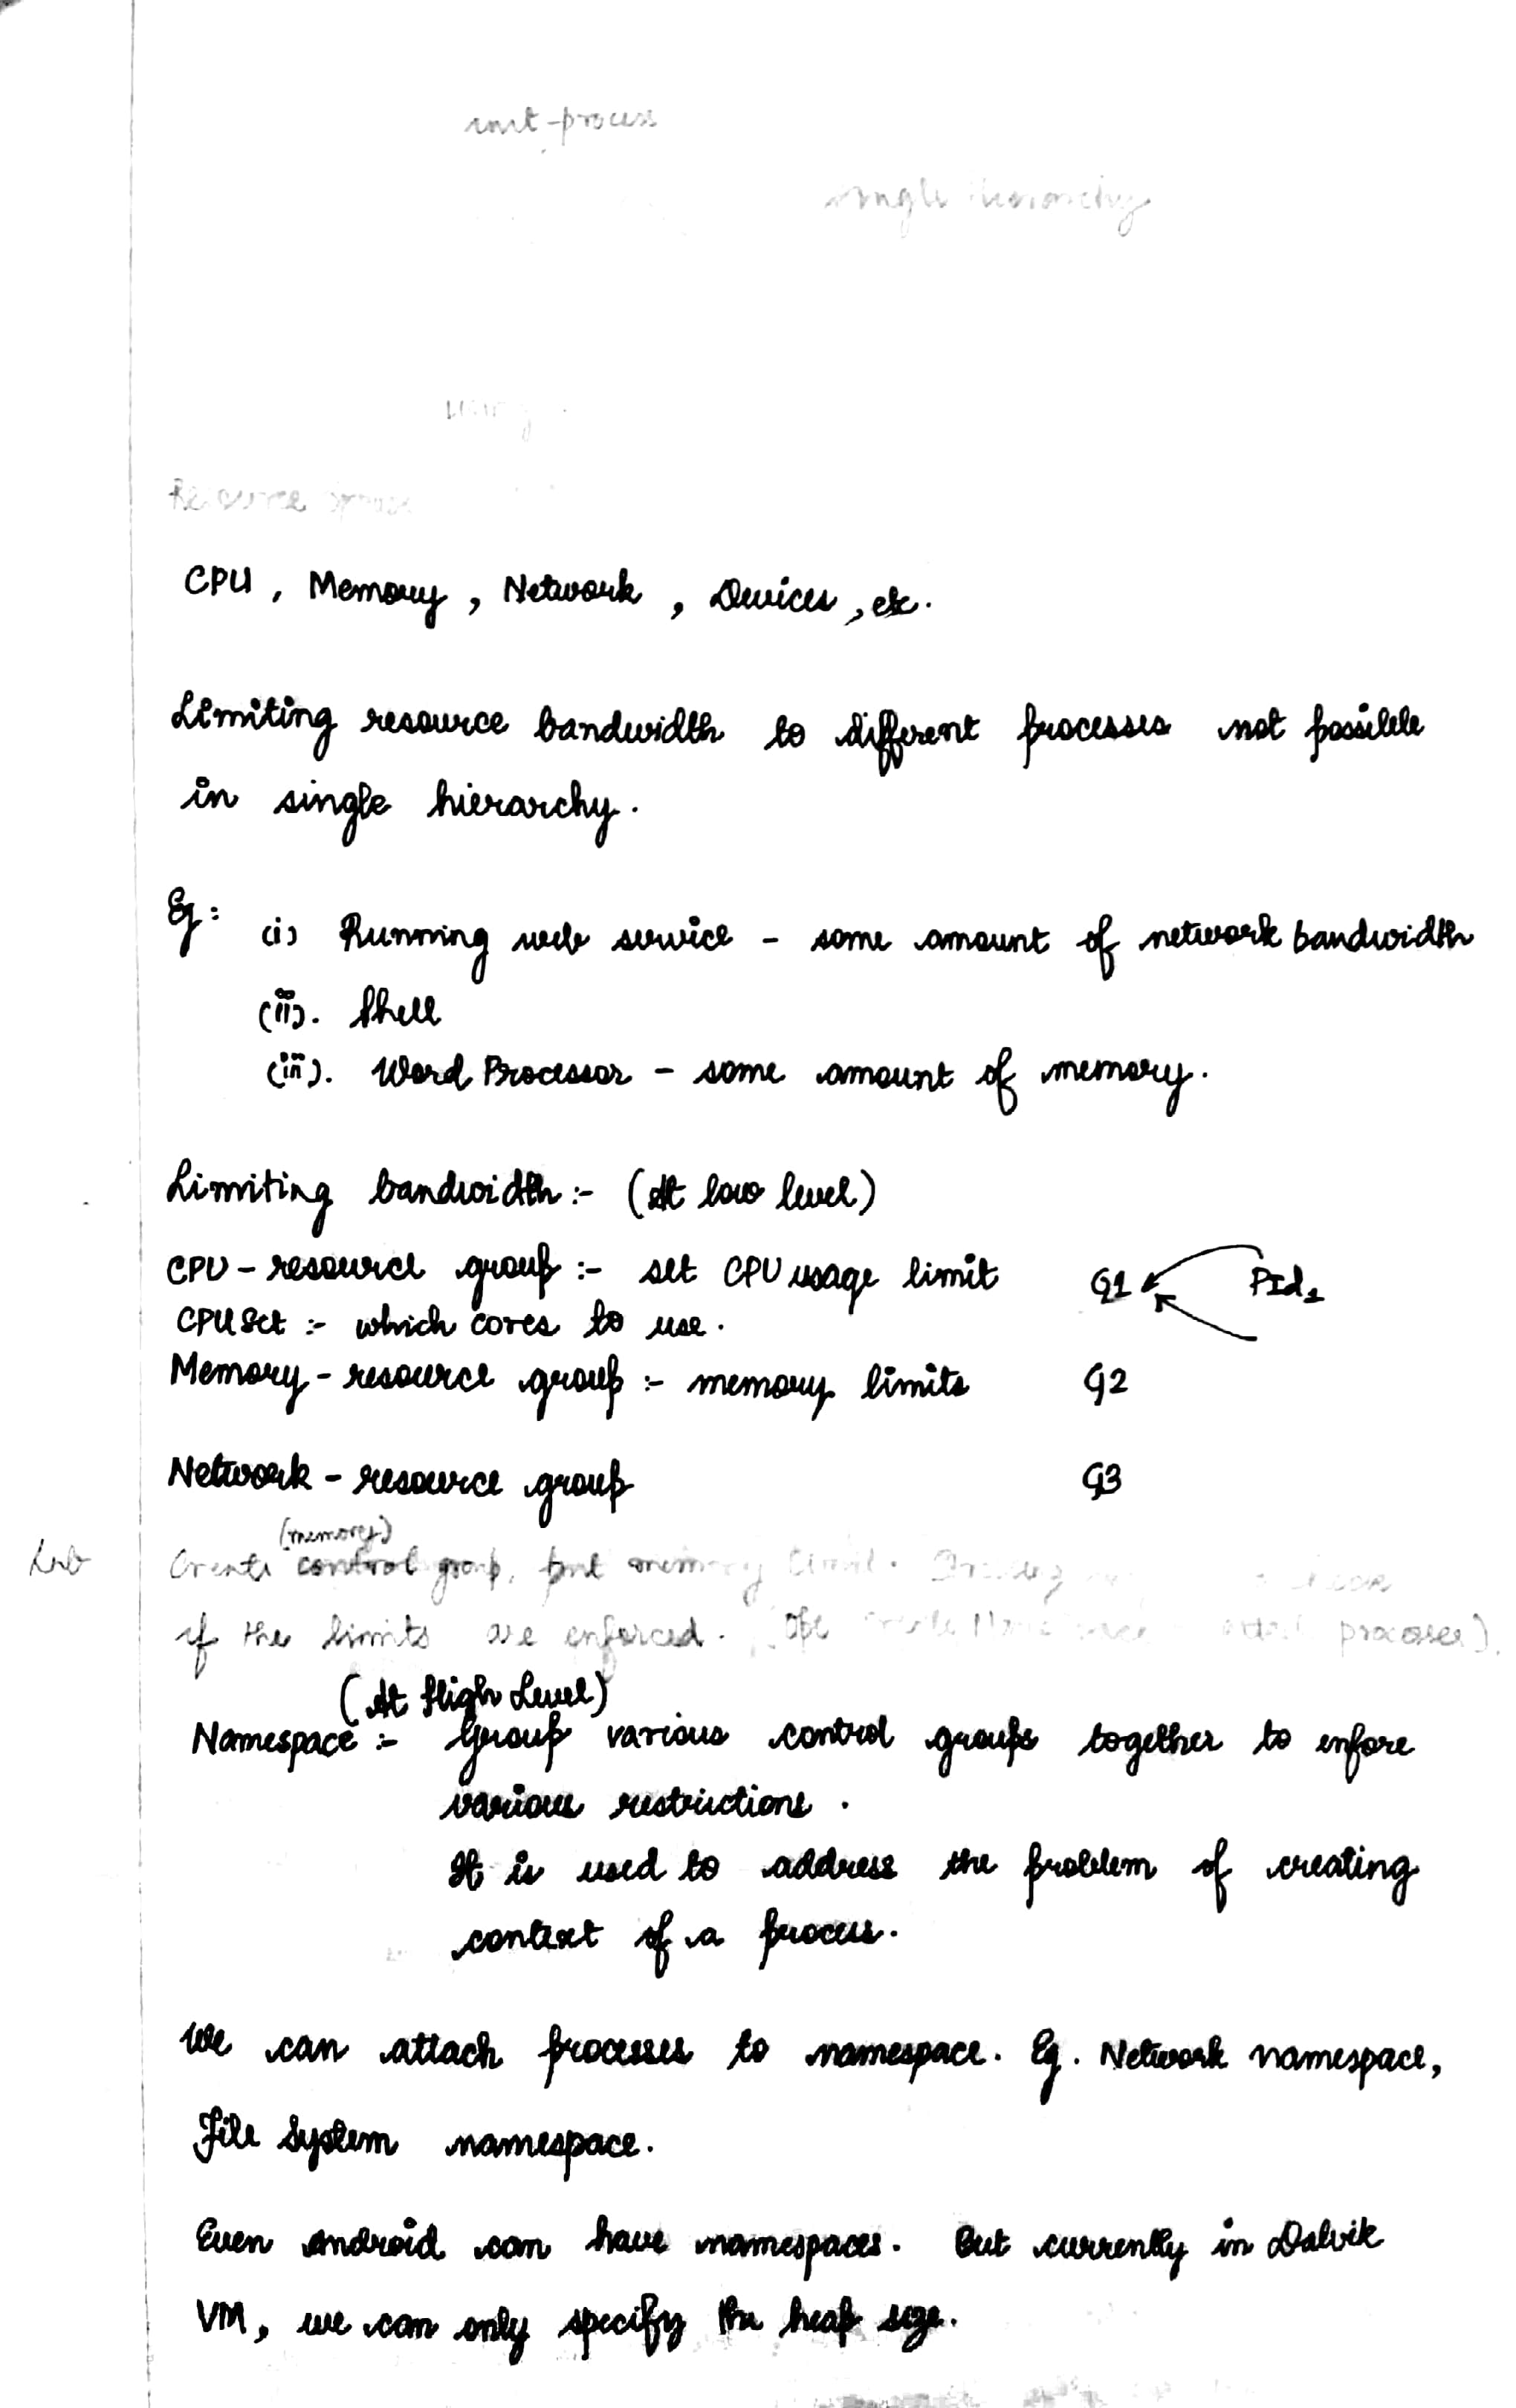 init-process
single hierarchy
Resource
CPU, Memory, Network, Devices, etc.
Limiting resource bandwidth to different processes not possible
in single hierarchy.
Eg: (i) Running web service - some amount of network bandwidth
(ii). Shell
(iii). Word Processor - some amount of memory.
Limiting bandwidth:- (At low level)
CPU - resource group :- set CPU usage limit G1 PId1
CPUSet :- which cores to use.
Memory - resource group :- memory limits G2
Network - resource group G3
(memory)
Lab Create control group, put memory limit.
if the limits are enforced. processes).
(At High Level)
Namespace :- Group various control groups together to enfore
various restrictions.
It is used to address the problem of creating
context of a process.
We can attach processes to namespace. Eg. Network namespace,
File System namespace.
Even android can have namespaces. But currently in Dalvik
VM, we can only specify the heap size.